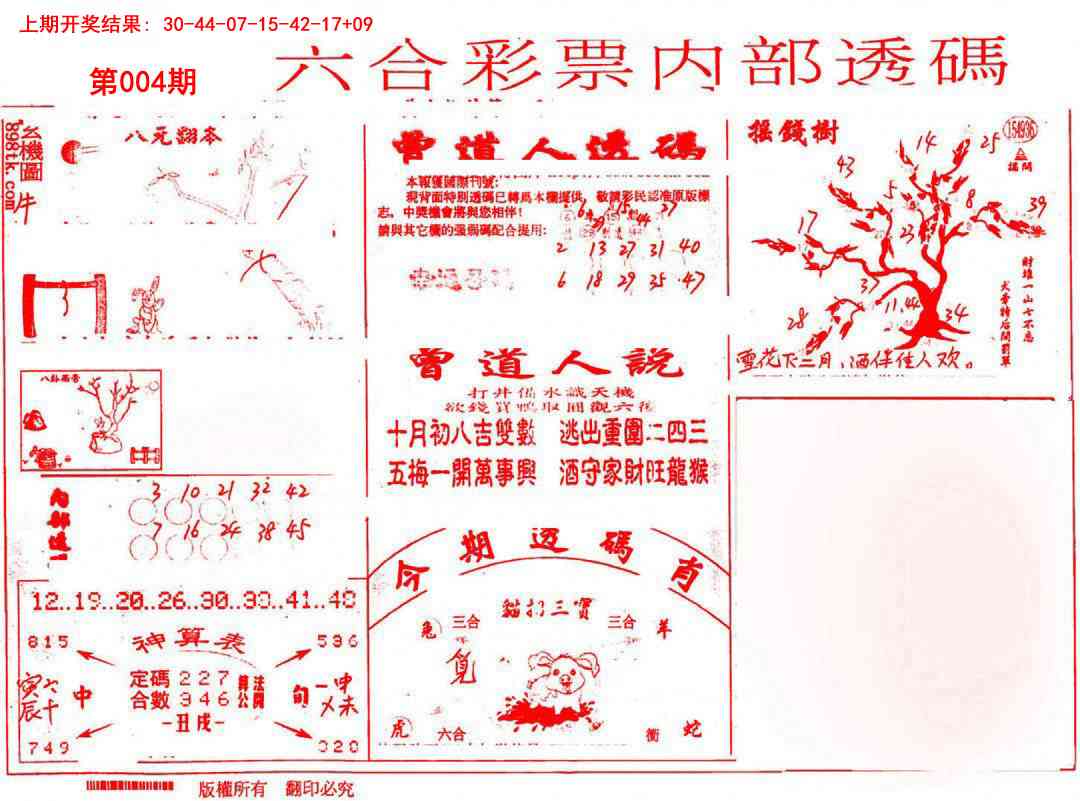 上期开奖结果: 30-44-07-15-42-17+09
第004期
六合彩票内部透碼
玄機圖
898tk.com
牛
八元翻本
曾道人透碼
本報獲國際刊號:
現背面特別透碼已轉爲本欄提供，敬請彩民認准原版欄
志，中獎機會將與您相伴！
請與其它欄的强弱碼配合提用:
2 13 27 31 40
6 18 29 35 47
搖錢樹
154936
43 14 25
17 5 23 8 39
37 11.44
28 34
財堆一山七不忘
雪花下三月，酒伴佳人欢。
曾道人說
打井備水識天機
十月初八吉雙數 逃出重圍二四三
五梅一開萬事興 酒守家財旺龍猴
內部透
3 10 21 32 42
7 16 24 38 45
12..19..20..26..30..33..41..48
神算表
815
536
定碼 227
合數 346
算公
法開
-丑戌-
寅辰
中
旬
749
020
今期透碼肖
貓打三寶
兔 三合
三合 羊
覓
虎 六合
衝 蛇
版權所有 翻印必究